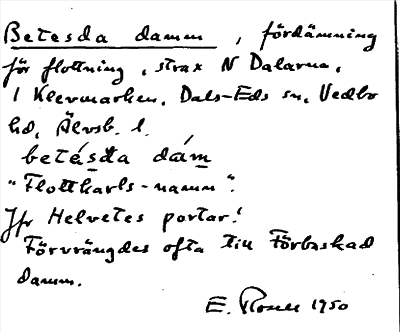 Betesda damm, fördämning
för flottning, strax N Dalarna,
i Klevmarken, Dals-Eds sn, Vedbo
hd, Älvsb. l.
betésda dám
"Flottkarls-namn".
Jfr Helvetes portar!
Förvrängdes ofta till Förbaskad
damm.
E. 1950